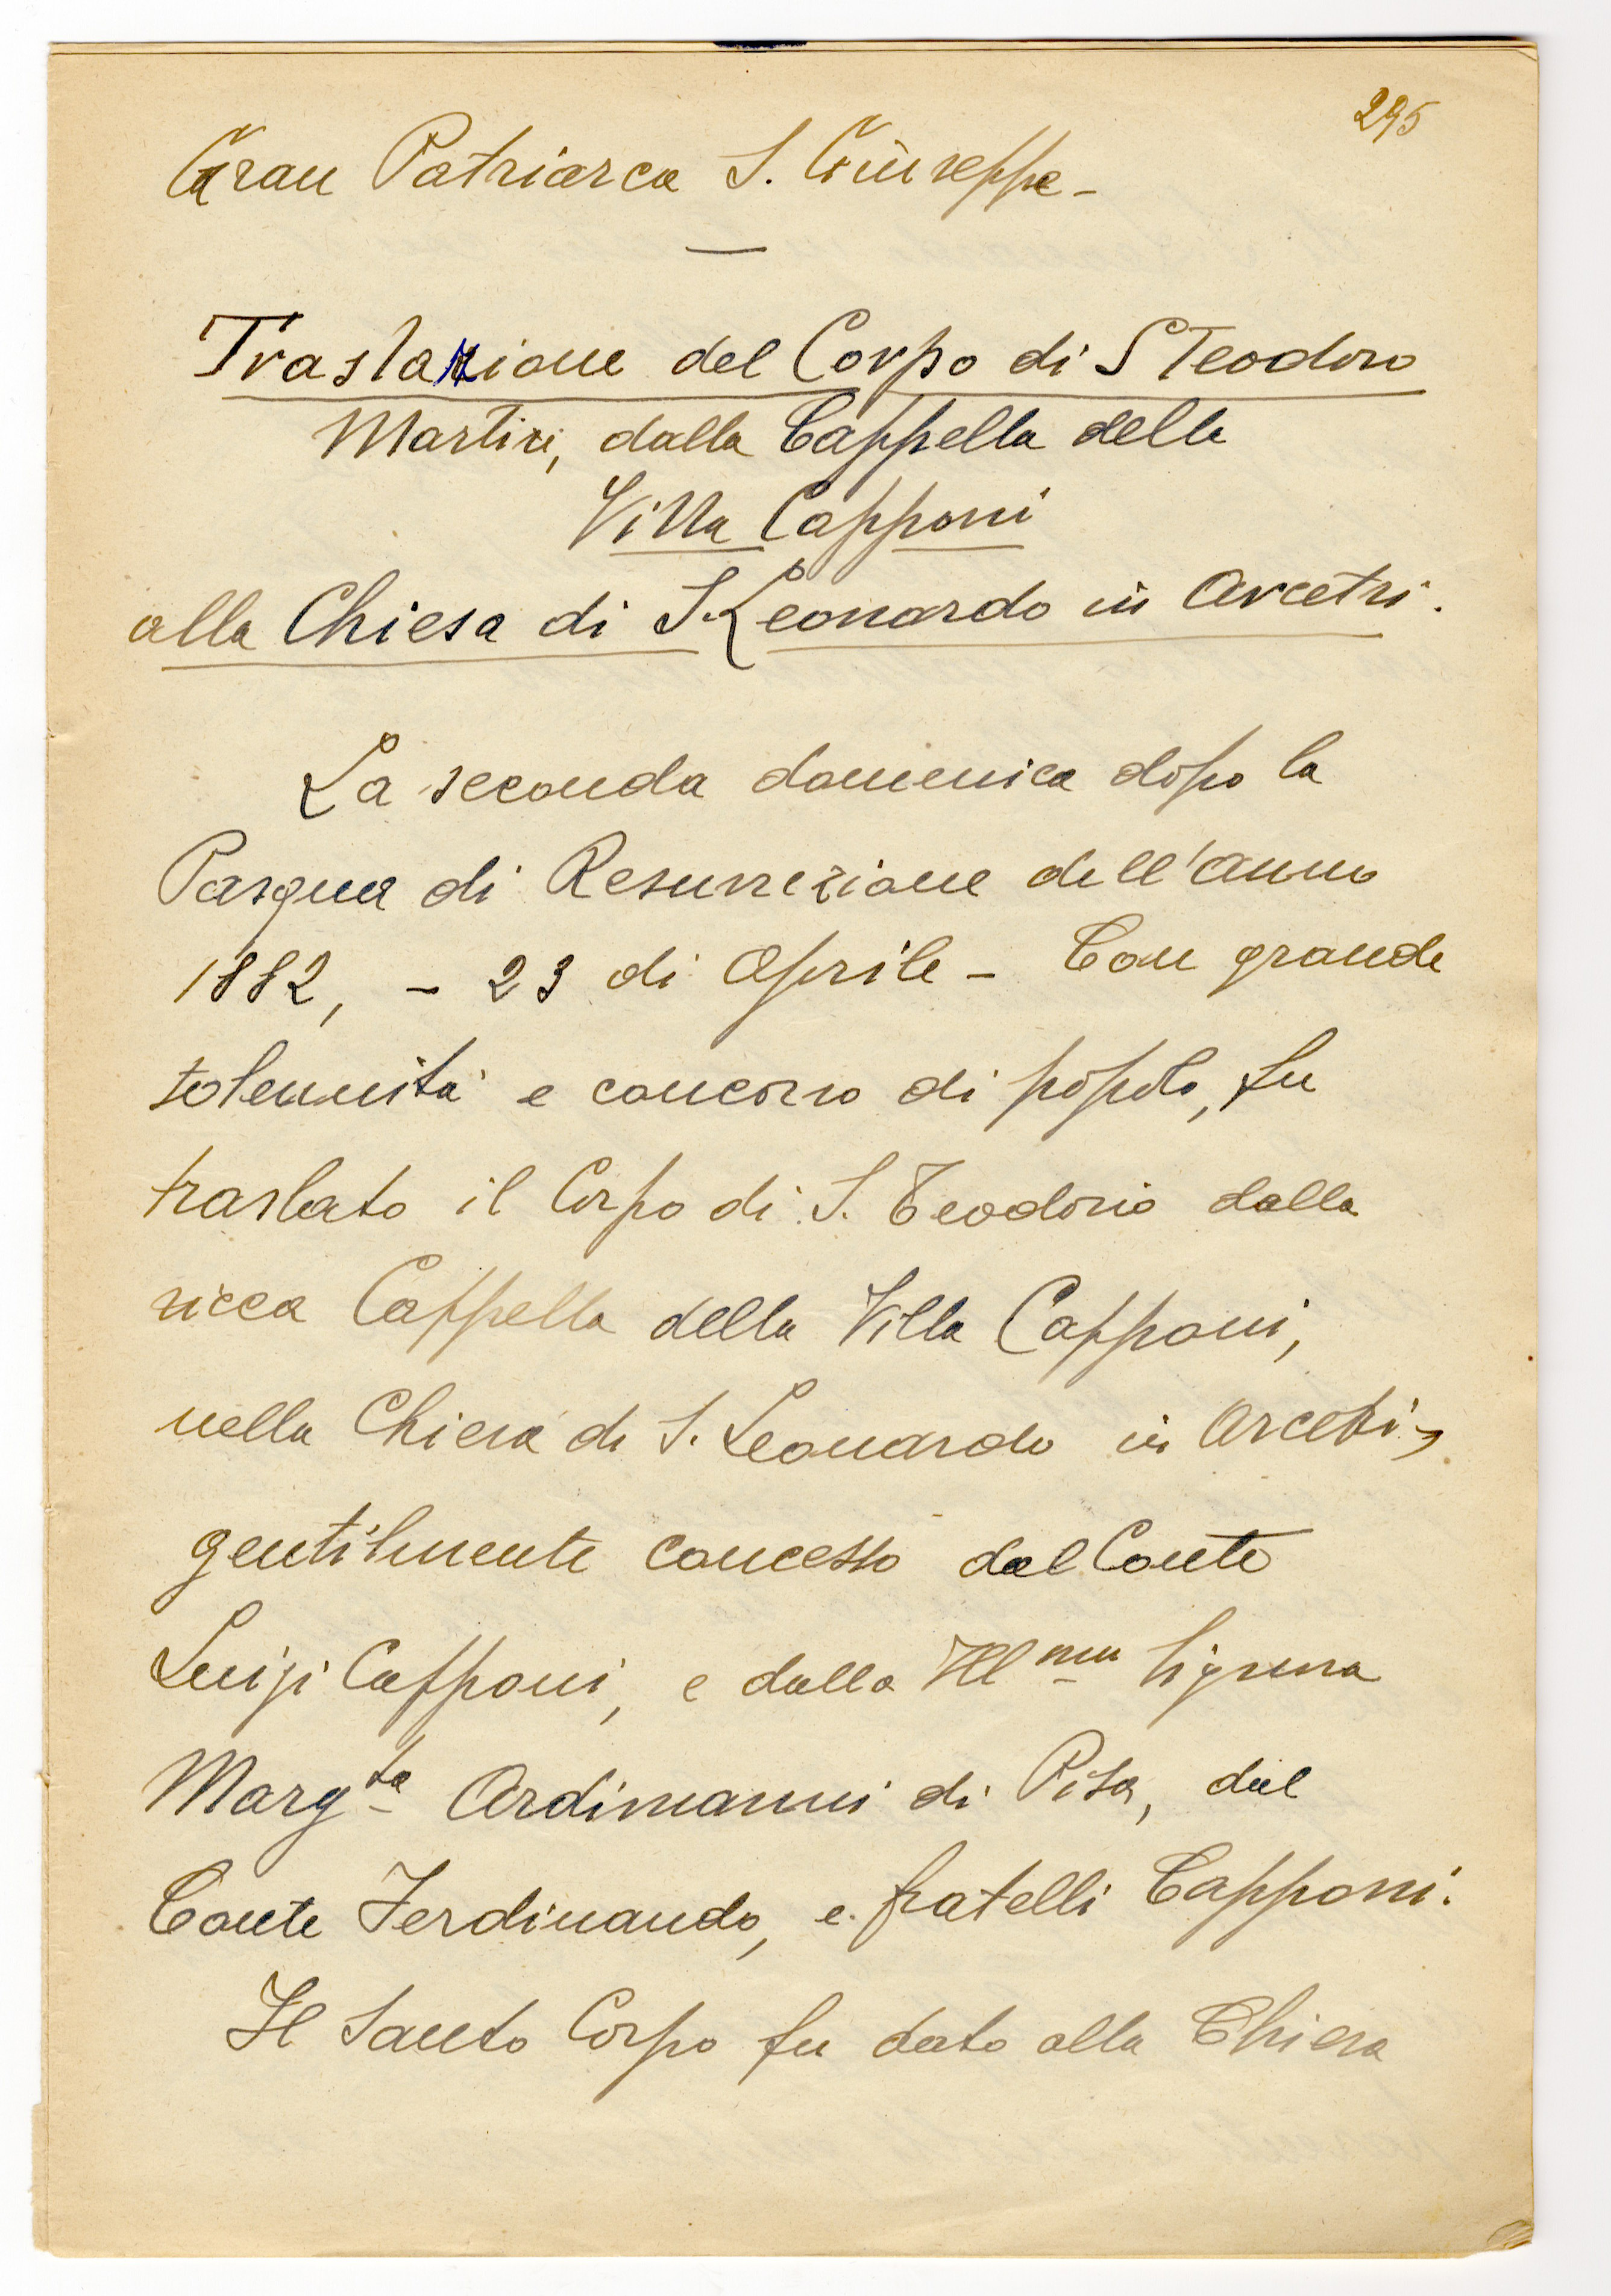 295
Gran Patriarca S. Giuseppe -
Traslazione del Corpo di S Teodoro
Martire, dalla Cappella della
Villa Capponi
alla Chiesa di S. Leonardo in Arcetri.
La seconda domenica dopo la
Pasqua di Resurrezione dell'anno
1882, - 23 di Aprile - Con grande
solennità e concorso di popolo, fu
traslato il Corpo di S. Teodoro dalla
ricca Cappella della Villa Capponi,
nella Chiesa di S. Leonardo in Arcetri,
gentilmente concesso dal Conte
Luigi Capponi, e dalla Ill.ma Signora
Marg.ta Ardimanni di Pisa, dal
Conte Ferdinando, e fratelli Capponi.
Il Santo Corpo fu dato alla Chiesa